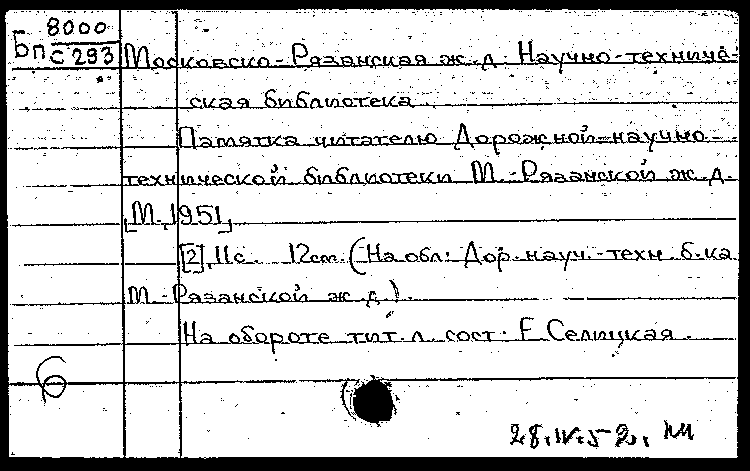 8000
Бп С 293
Московско-Рязанская ж.д. Научно-техниче-
ская библиотека.
Памятка читателю Дорожной научно-
технической библиотеки М.-Рязанской ж.д.
[М., 1951]
[2], 11с. 12cm. (На обл: Дор. науч.-техн. б-ка
М.-Рязанской ж.д.).
На обороте тит. л. сост: Е Селицкая.
б
28.IV.52.